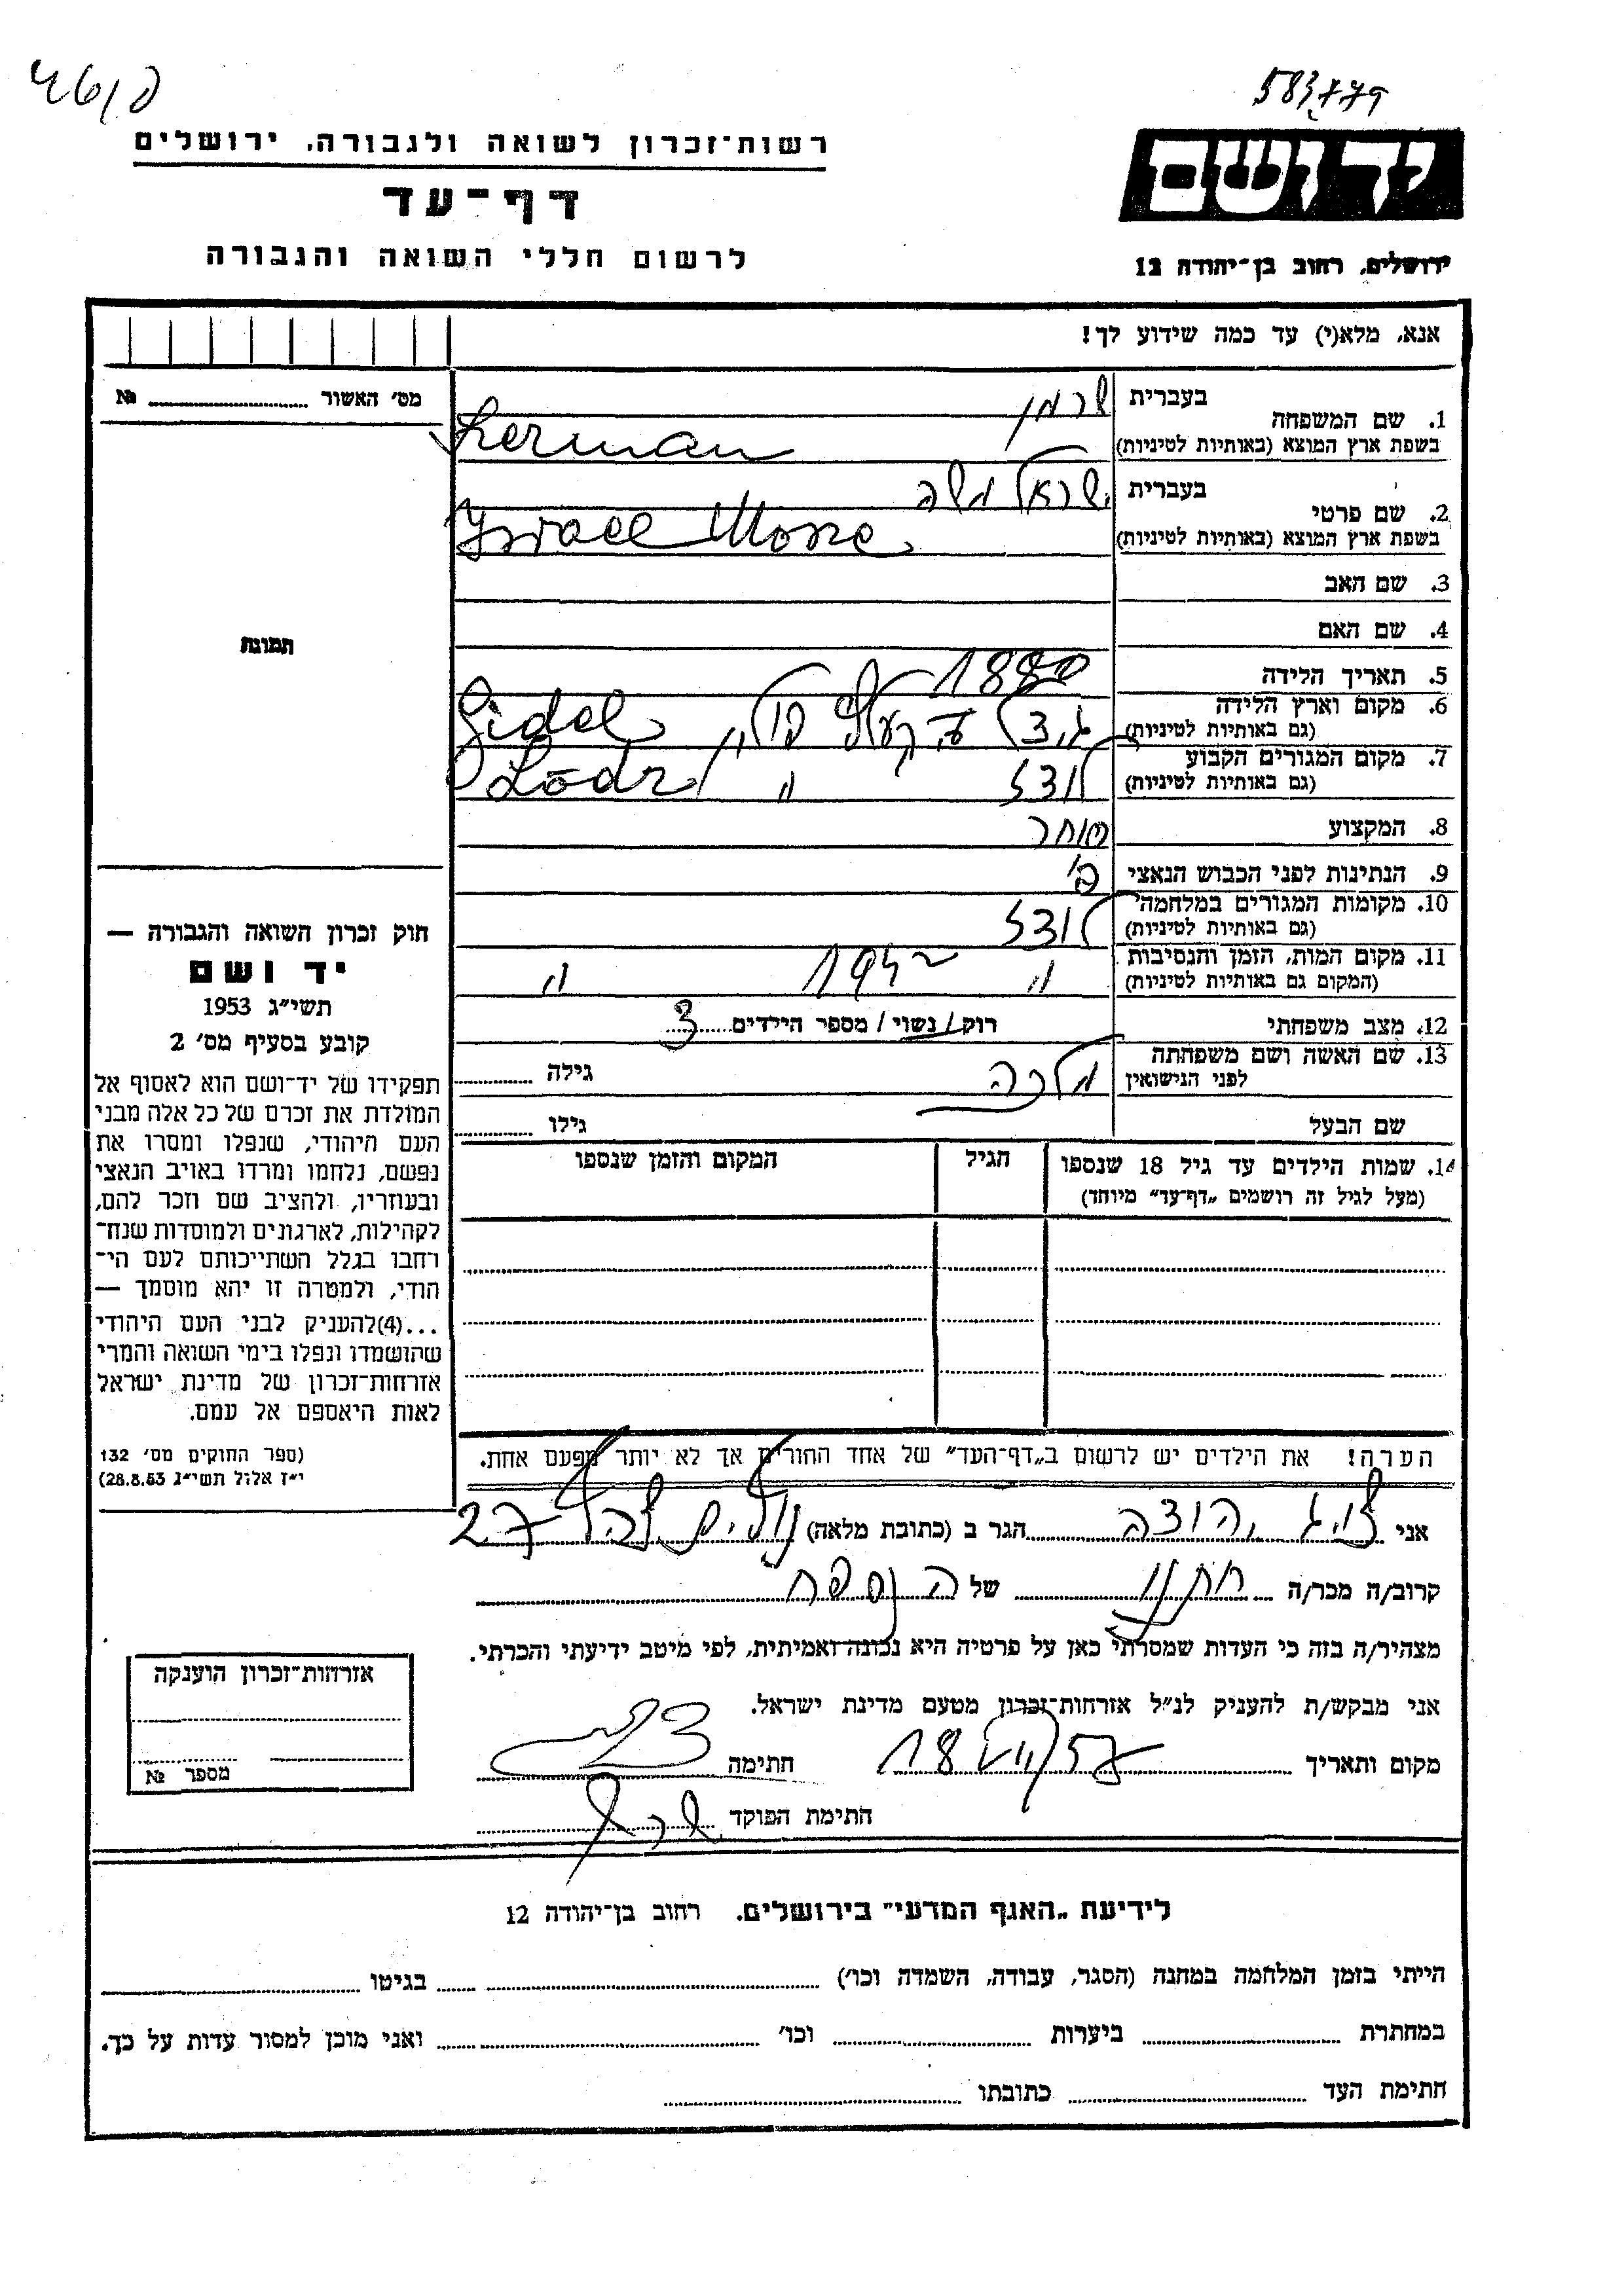 583779
רשות-זכרון לשואה ולגבורה, ירושלים
יד ושם
דף-עד
לרשום חללי השואה והגבורה
ירושלים, רחוב בן-יהודה 12
אנא, מלא(י) עד כמה שידוע לך!
מס׳ האשור № 
1. שם המשפחה
בעברית שרמן
בשפת ארץ המוצא (באותיות לטיניות) Sherman
2. שם פרטי
בעברית ישראל משה
בשפת ארץ המוצא (באותיות לטיניות) Israel Mosze
3. שם האב
4. שם האם
5. תאריך הלידה 1880
6. מקום וארץ הלידה
(גם באותיות לטיניות) פולין
7. מקום המגורים הקבוע
(גם באותיות לטיניות) לודז׳ " Lodz
8. המקצוע סוחר
9. הנתינות לפני הכבוש הנאצי פ׳
10. מקומות המגורים במלחמה
(גם באותיות לטיניות) לודז
11. מקום המות, הזמן והנסיבות
(המקום גם באותיות לטיניות) " 1942 "
12. מצב משפחתי רוק/נשוי/ מספר הילדים 3
13. שם האשה ושם משפחתה
לפני הנישואין מלכה גילה
שם הבעל גילו
14. שמות הילדים עד גיל 18 שנספו הגיל המקום והזמן שנספו
(מעל לגיל זה רושמים „דף-עד" מיוחד)
הערה! את הילדים יש לרשום ב„דף-העד" של אחד ההורים אך לא יותר מפעם אחת.
תמונה
חוק זכרון השואה והגבורה —
יד ושם
תשי״ג 1953
קובע בסעיף מס׳ 2
תפקידו של יד-ושם הוא לאסוף אל
המולדת את זכרם של כל אלה מבני
העם היהודי, שנפלו ומסרו את
נפשם, נלחמו ומרדו באויב הנאצי
ובעוזריו, ולהציב שם וזכר להם,
לקהילות, לארגונים ולמוסדות שנח-
רחבו בגלל השתייכותם לעם הי-
הודי, ולמטרה זו יהא מוסמך —
...(4)להעניק לבני העם היהודי
שהושמדו ונפלו בימי השואה והמרי
אזרחות-זכרון של מדינת ישראל
לאות היאספם אל עמם.
(ספר החוקים מס׳ 132
י״ז אלול תשי״ג 28.8.53)
אני הגר ב (כתובת מלאה) 27
קרוב/ה מכר/ה חתנו של הנספה
מצהיר/ה בזה כי העדות שמסרתי כאן על פרטיה היא נכונה ואמיתית, לפי מיטב ידיעתי והכרתי.
אני מבקש/ת להעניק לנ״ל אזרחות-זכרון מטעם מדינת ישראל.
מקום ותאריך 18 חתימה
חתימת הפוקד
אזרחות-זכרון הוענקה
מספר №
לידיעת „האגף המדעי" בירושלים. רחוב בן-יהודה 12
הייתי בזמן המלחמה במחנה (הסגר, עבודה, השמדה וכו׳) בגיטו
במחתרת ביערות וכו׳ ואני מוכן למסור עדות על כך.
חתימת העד כתובתו